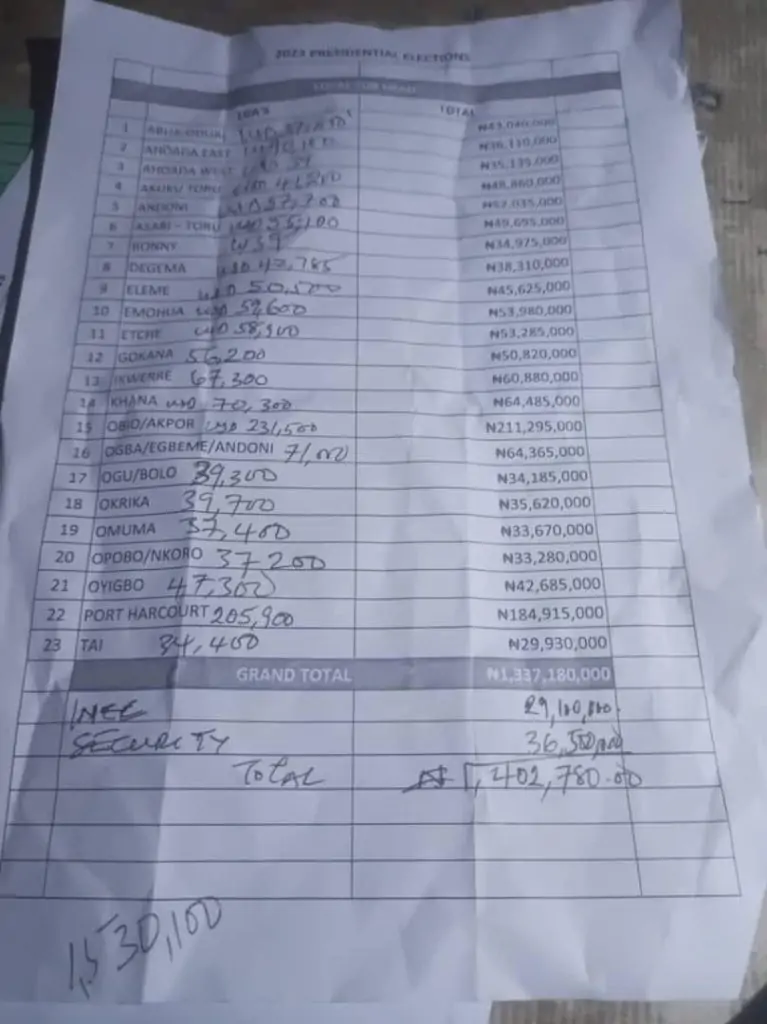 2023 PRESIDENTIAL ELECTIONS
LGA'S TOTAL
1 ABUA-ODUAL ₦43,040,000
2 AHOADA EAST ₦36,110,000
3 AHOADA WEST ₦35,135,000
4 AKUKU TORU ₦48,860,000
5 ANDONI ₦52,035,000
6 ASARI - TORU USD 55,100 ₦49,695,000
7 BONNY USD 39 ₦34,975,000
8 DEGEMA USD 42,785 ₦38,310,000
9 ELEME USD 50,500 ₦45,625,000
10 EMOHUA USD 59,600 ₦53,980,000
11 ETCHE USD 58,900 ₦53,285,000
12 GOKANA 56,200 ₦50,820,000
13 IKWERRE 67,300 ₦60,880,000
14 KHANA USD 70,300 ₦64,485,000
15 OBIO/AKPOR USD 231,500 ₦211,295,000
16 OGBA/EGBEME/ANDONI 71,000 ₦64,365,000
17 OGU/BOLO 39,300 ₦34,185,000
18 OKRIKA 39,700 ₦35,620,000
19 OMUMA 37,400 ₦33,670,000
20 OPOBO/NKORO 37,200 ₦33,280,000
21 OYIGBO 47,300 ₦42,685,000
22 PORT HARCOURT 205,900 ₦184,915,000
23 TAI 34,400 ₦29,930,000
GRAND TOTAL ₦1,337,180,000
INEC 29,100,000.
SECURITY 36,500,000
TOTAL ₦1,402,780.00
1,530,100